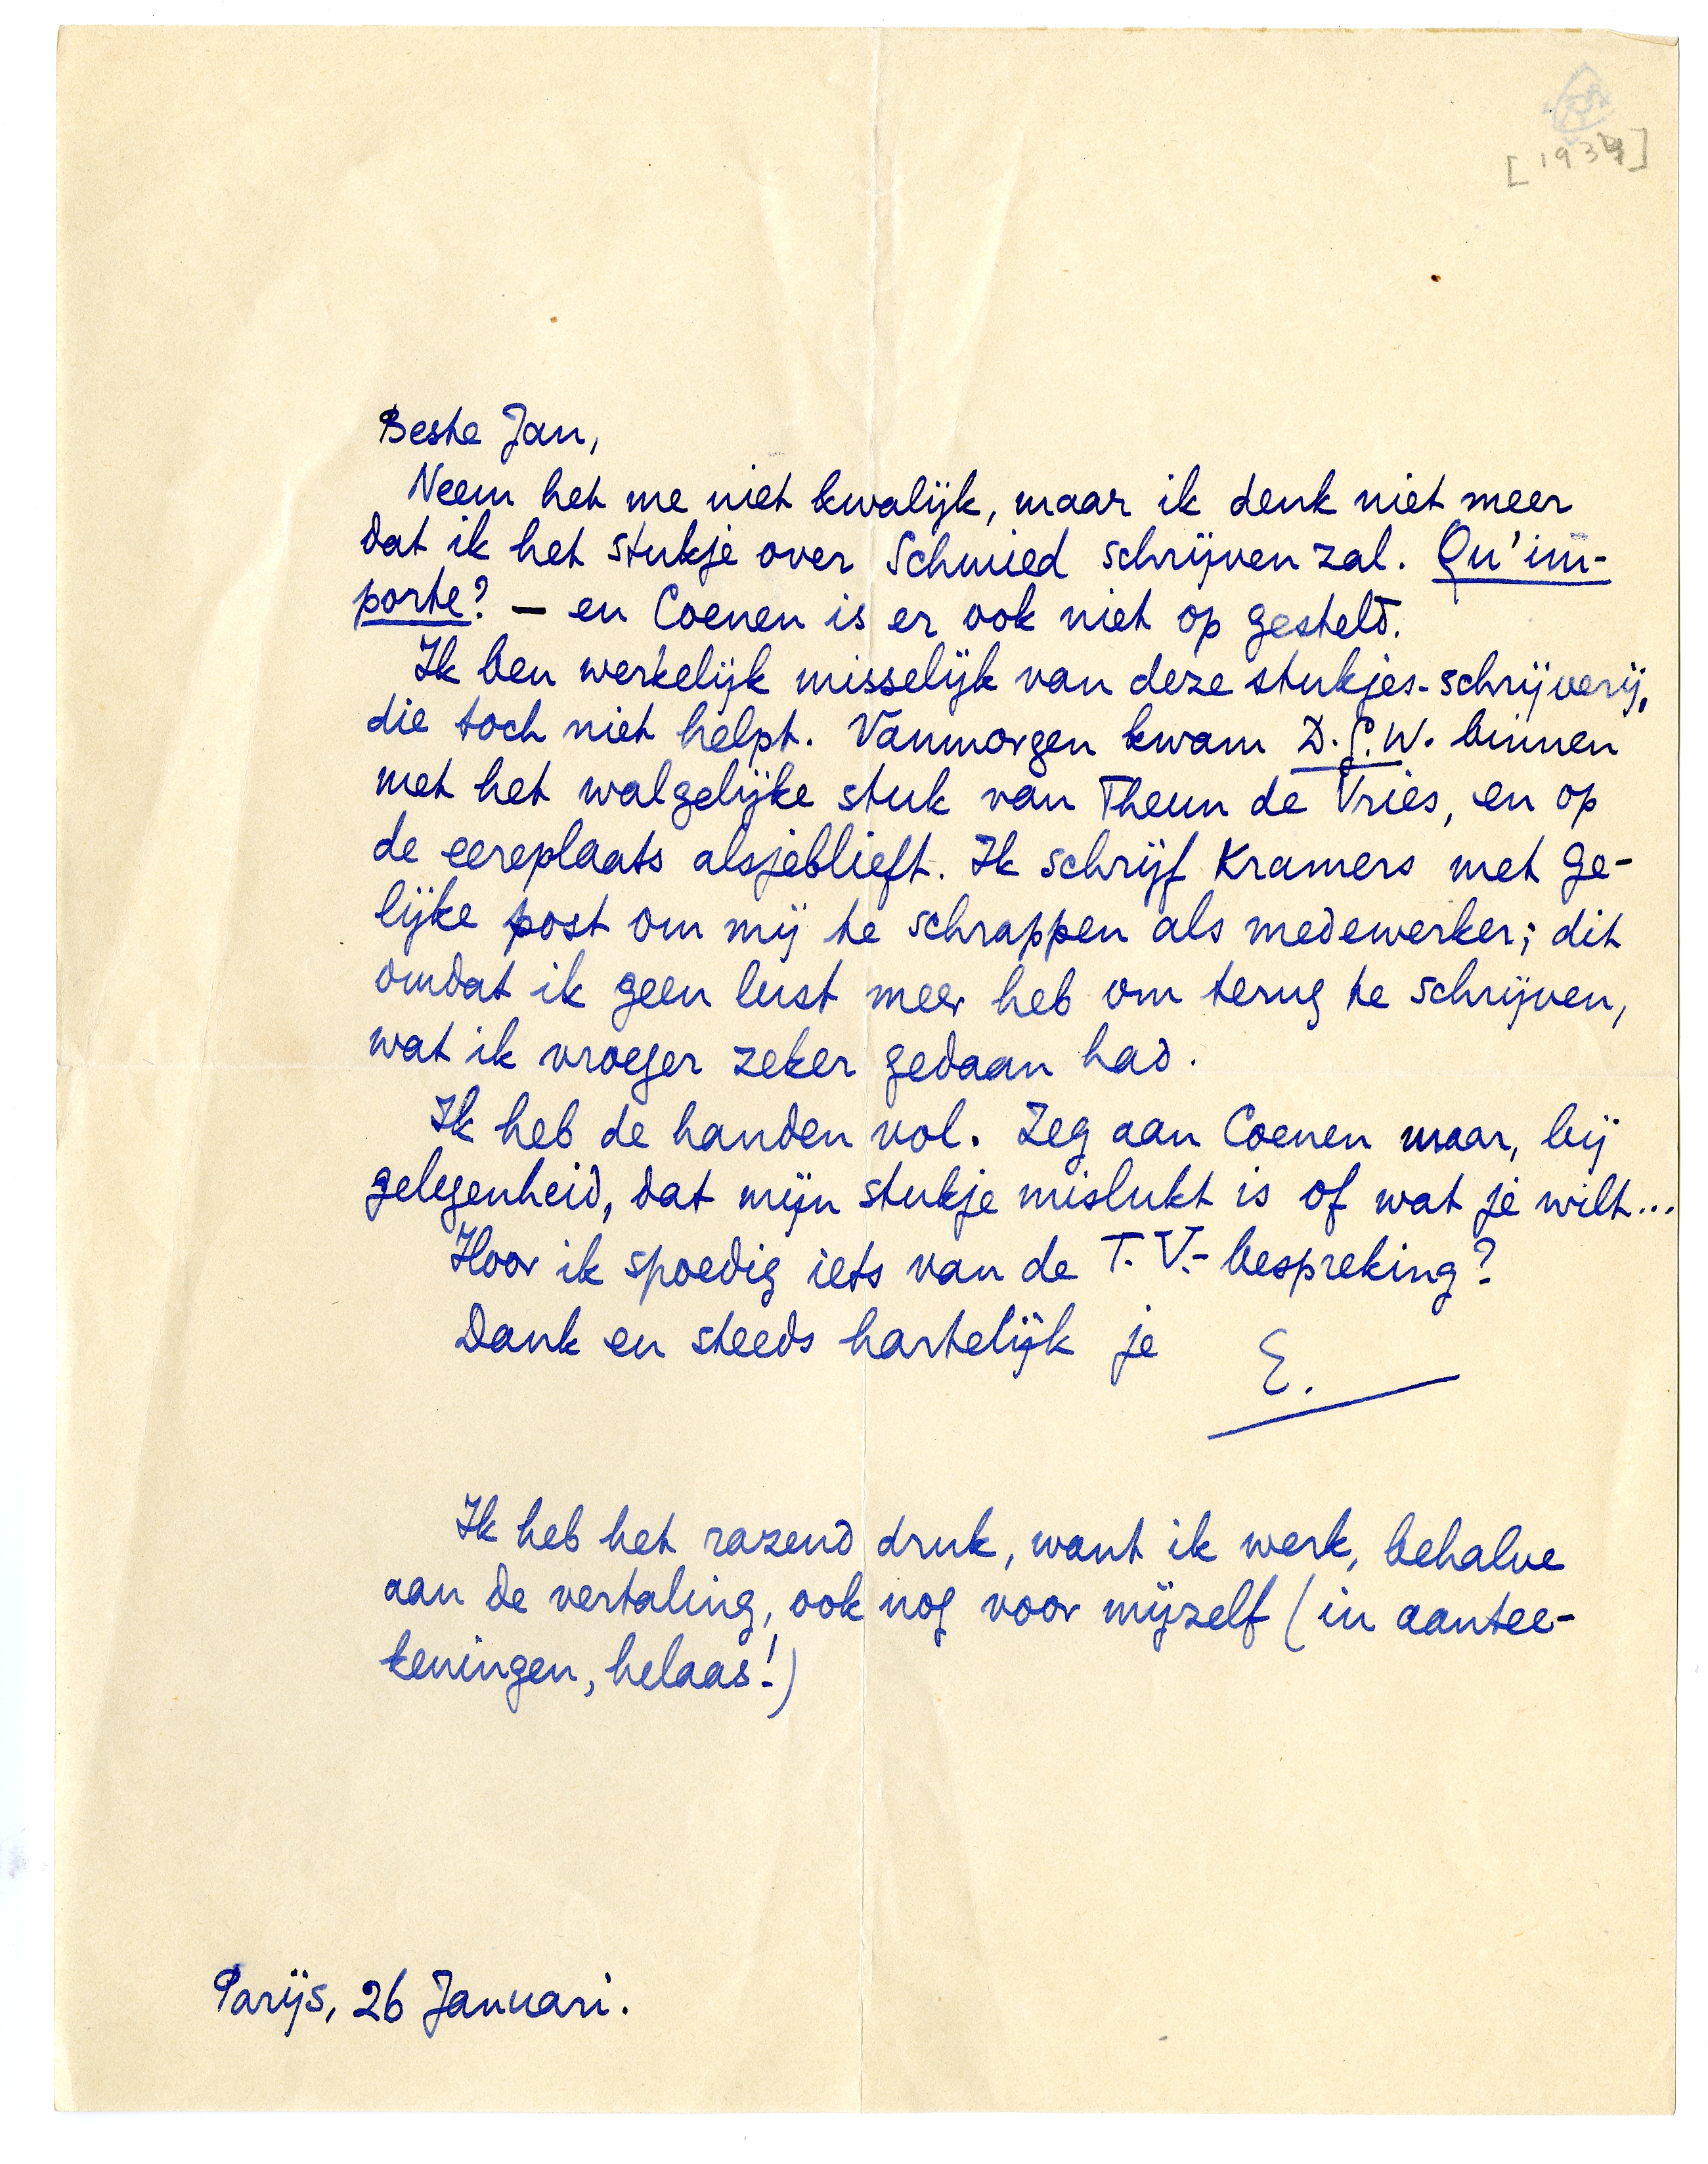 [1934]
Beste Jan,
Neem het me niet kwalijk, maar ik denk niet meer
dat ik het stukje over Schmied schrijven zal. Qu'im-
porte? — en Coenen is er ook niet op gesteld.
Ik ben werkelijk misselijk van deze stukjes-schrijverij,
die toch niet helpt. Vanmorgen kwam D.G.W. binnen
met het walgelijke stuk van Theun de Vries, en op
de eereplaats alsjeblieft. Ik schrijf Kramers met ge-
lijke post om mij te schrappen als medewerker; dit
omdat ik geen lust meer heb om terug te schrijven,
wat ik vroeger zeker gedaan had.
Ik heb de handen vol. Zeg aan Coenen maar, bij
gelegenheid, dat mijn stukje mislukt is of wat je wilt...
Hoor ik spoedig iets van de T.V.-bespreking?
Dank en steeds hartelijk je E.
Ik heb het razend druk, want ik werk, behalve
aan de vertaling, ook nog voor mijzelf (in aantee-
keningen, helaas!)
Parijs, 26 Januari.